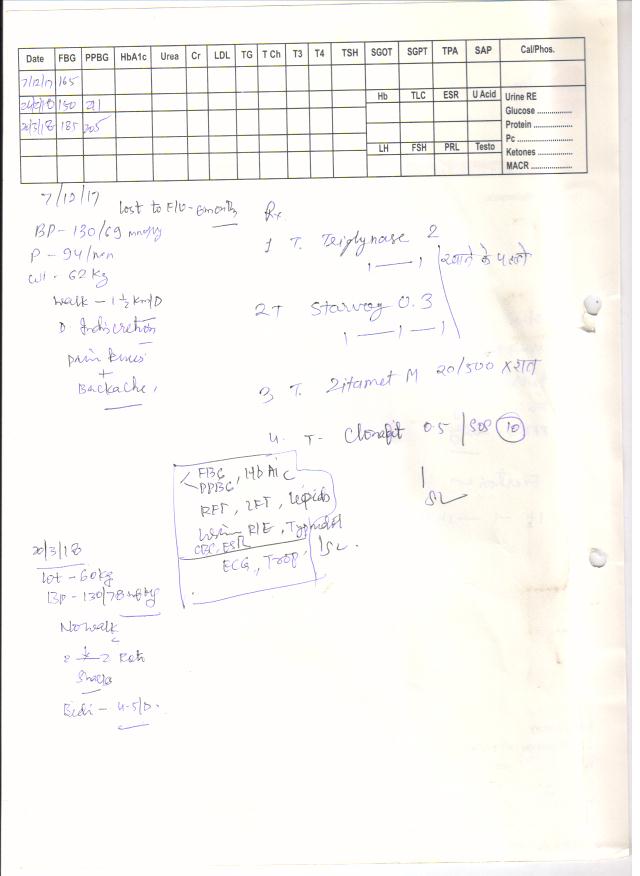 Date FBG PPBG HbA1c Urea Cr LDL TG T Ch T3 T4 TSH SGOT SGPT TPA SAP Cal/Phos.
7/12/17 165
150 211
20/3/18 185 205
Hb TLC ESR U Acid
LH FSH PRL Testo
Urine RE
Glucose ..............
Protein ..............
Pc ..............
Ketones ..............
MACR ..............
7/12/17
Lost to F/U - 6 months
BP - 130/69 mmHg
P - 94/min
Wt - 62 Kg
Walk - 1½ Km/D
D. Indiscretion
Pain Knees
+
Backache
Rx
1 T. Triglynase 2
1 — 1
खाने के पहले
2 T Starvog 0.3
1 — 1 — 1
3 T. Zitamet M 20/500 X रात
4. T- 0.5 / SOS 10
FBG, HbA1c
PPBG
RFT, LFT, Lipids
R/E
CBC, ESR
ECG, Trop
20/3/18
Wt - 60 Kg
BP - 130/78 mmHg
No walk
2 2 Roti
Bidi - 4-5/D.